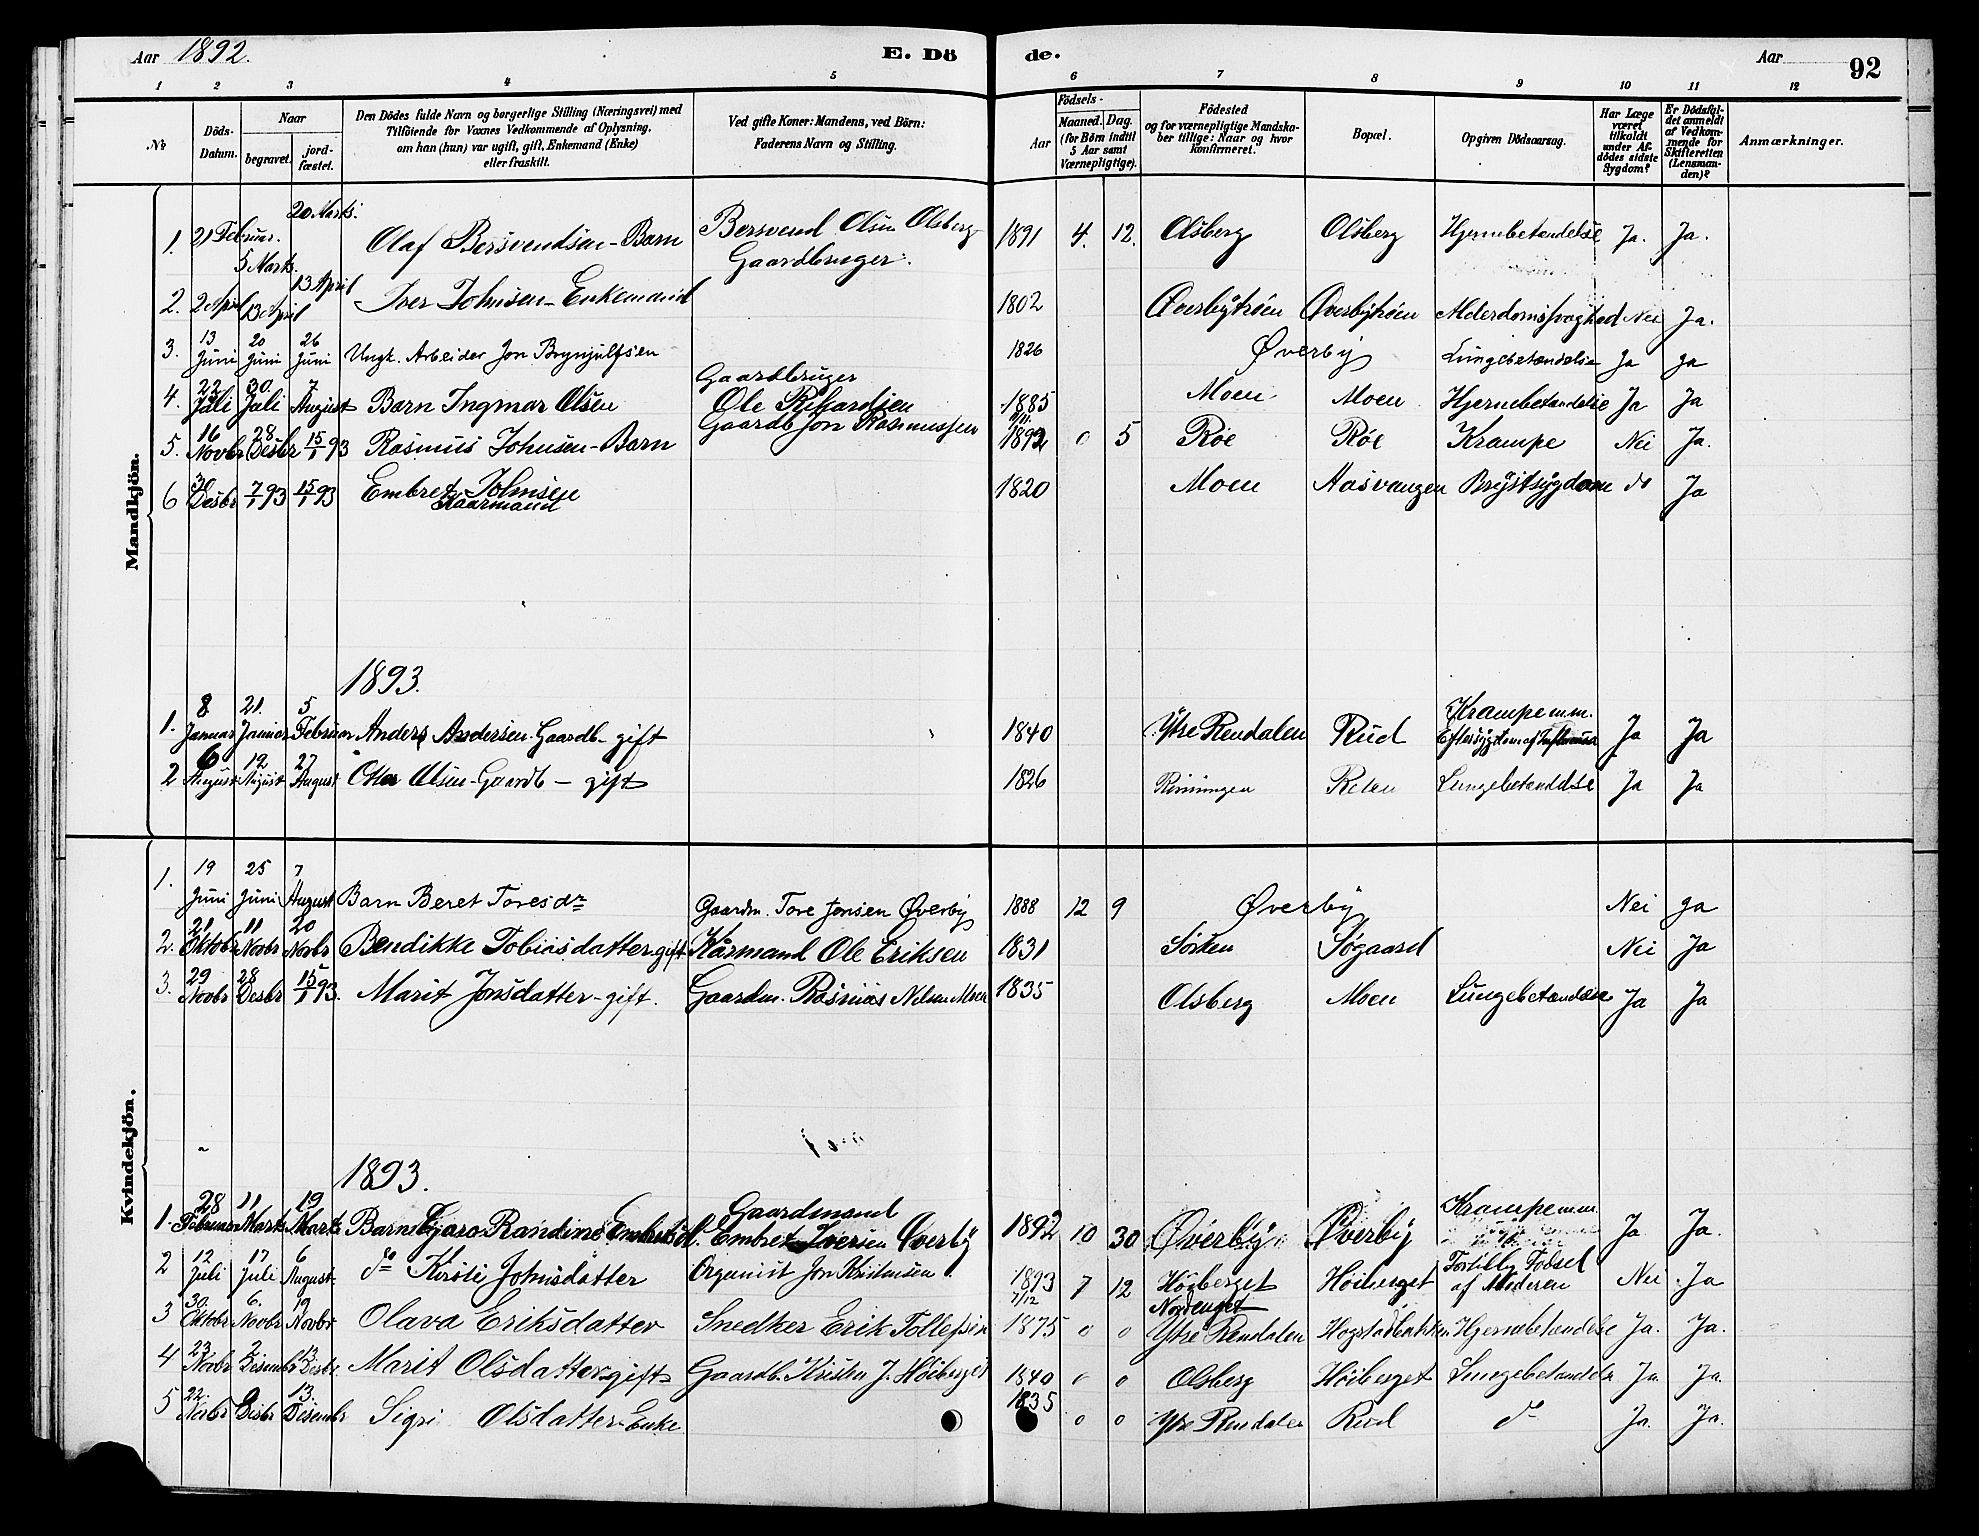 Aar 1892.
E. Dö de.
Aar
92
1 2 3 4 5 6 7 8 9 10 11 12
No
Döds-Datum.
Naar
begravet.
jord-fæstet.
Den Dödes fulde Navn og borgerlige Stilling (Næringsvei) med Tilföiende for Voxnes Vedkommende af Oplysning, om han (hun) var ugift, gift, Enkemand (Enke) eller fraskilt.
Ved gifte Koner: Mandens, ved Börn: Faderens Navn og Stilling.
Födsels-
Aar
Maaned. Dag.
(for Börn indtil 5 Aar samt Værnepligtige).
Födested og for værnepligtige Mandskaber tillige: Naar og hvor konfirmeret.
Bopæl.
Opgiven Dödsaarsag.
Har Læge været tilkaldt under Afdödes sidste Sygdom?
Er Dödsfaldet anmeldt af Vedkommende for Skifteretten (Lensmanden)?
Anmærkninger.
Mandkjön.
1. 21 Februar. 5 Marts. 20 Marts. Olaf Bersvendsen - Barn Bersvend Olsen Olsberg Gaardbruger. 1891 4. 12. Olsberg Olsberg Hjernebetændelse Ja. Ja.
2. 2 April 13 April 13 April Iver Johnsen - Enkemand 1802 Øverbytrøen Øverbytrøen Alderdomssvaghed Nei Ja.
3. 13 Juni 20 Juni 26 Juni Ungk. Arbeider Jon Brynjulfsen 1826 Øverby Lungebetændelse Ja Ja
4. 22 Juli 30. Juli 7 August Barn Ingmar Olsen Gaardbruger Ole Rikardsen 1885 Moen Moen Hjernebetændelse Ja Ja
5. 16 Novbr 28 Desbr 15/1 93 Rasmus Johnsen - Barn Gaardb. Jon Rasmussen 1892 0 5 Røe Røe Krampe Nei Ja.
6 30 Desbr 7/1 93 15/1 93 Embret Johnsen Kaarmand 1820 Moen Aasvangen Brystsygdom do Ja
1893.
1. 8 Januar 21. Januar 5 Februar Anders Andersen. Gaardb - gift 1840 Ytre Rendalen Rud Krampe m.m. Eftersygdom af Influensa Ja Ja
2 6 August 12 August 27 August Olsen - Gaardb - gift 1826 Lungebetændelse Ja Ja
Kvindekjön.
1. 19 Juni 25 Juni 7 August Barn Beret Toresdr Gaardm. Tore Jonsen Øverby 1888 12 9 Øverby Nei Ja
2. 21 Oktobr 11 Novbr 20 Novbr Bendikke Tobiasdatter. gift Kårmand Ole Eriksen 1831 Søgaard Nei Ja
3. 29 Novbr 28 Desbr 15/1 93. Marit Jonsdatter - gift. Gaardm. Rasmus Nelsen Moen 1835 Olsberg Moen Lungebetændelse Ja Ja
1893.
1. 28 Februar 11 Marts 19 Marts Barn Randine Embretsd. Gaardmand Embret Iversen Øverby 1892 10 30 Øverby Øverby Krampe m.m. Ja Ja.
2 12 Juli 17 Juli 6 August do Kirsti Johnsdatter Organist Jon Kristensen 1893 7 12 Høiberget Høiberget Fortidlig Fødsel af Moderen Nei Ja
3 30. Oktobr 6. Novbr 19 Novbr Olava Eriksdatter Snedker Erik Tollefsen 7/12 1875 0 0 Nordenget Ytre Rendalen Hogstadbakken Hjernebetændelse Ja. Ja.
4 23 Novbr 2 Desembr 13 Desbr. Marit Olsdatter gift Gaardb. Kristen J. Høiberget 1840 0 0 Olsberg Høiberget Lungebetændelse Ja Ja.
5 22. Novbr 2 Desbr 13. Desembr Sigri Olsdatter - Enke 1835 0 0 Ytre Rendalen Rud do Ja. Ja.